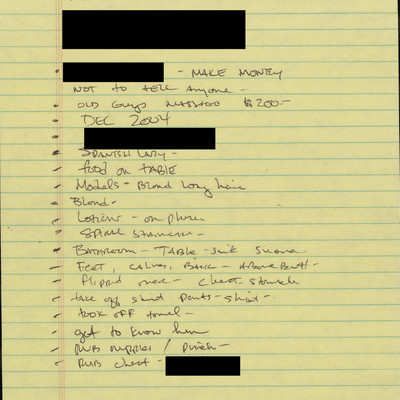 - MAKE MONEY
NOT to tell Anyone -
OLD Guys MASSAGE $200-
DEC 2004
SPANISH LADY -
food on TABLE
Models - Blond Long hair
Blond -
Lotion - on phone
SPIRAL STAIRCASE -
BATHROOM - TABLE - sink Sauna
FEET, CALVES, BACK - Above Butt -
flipped over - chest stomach
take off shirt Pants - shirt -
took OFF towel -
get to know him
RUB nipples / pinch -
RUB chest -